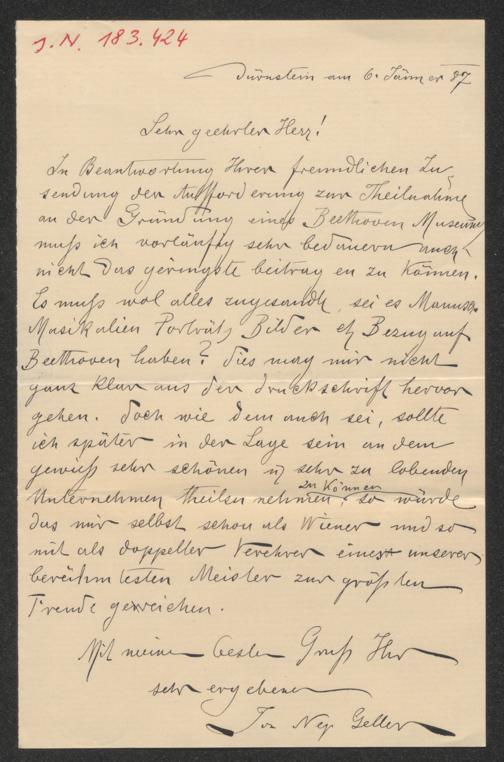 J.N. 183.424
Dürnstein am 6. Jänner 87
Sehr geehrter Herr!
In Beantwortung Ihrer freundlichen Zu-
sendung der Aufforderung zur Theilnahme
an der Gründung eines Beethoven Museums
muß ich vorläufig sehr bedauern auch
nicht das geringste beitragen zu können.
Es muß wol alles zugesandte, sei es Manusk.
Musikalien Porträts Bilder etz Bezug auf
Beethoven haben? dies mag mir nicht
ganz klar aus der druckschrift hervor
gehen. doch wie dem auch sei, sollte
ich später in der Lage sein an dem
gewiß sehr schönen u sehr zu lobenden
Unternehmen theilzu nehmen, zu können so würde
das mir selbst schon als Wiener und so
mit als doppelter Verehrer eines unserer
berühmtesten Meister zur größten
Freude gereichen.
Mit meinem besten Gruß Ihr
sehr ergebener
Joh Nep Geller